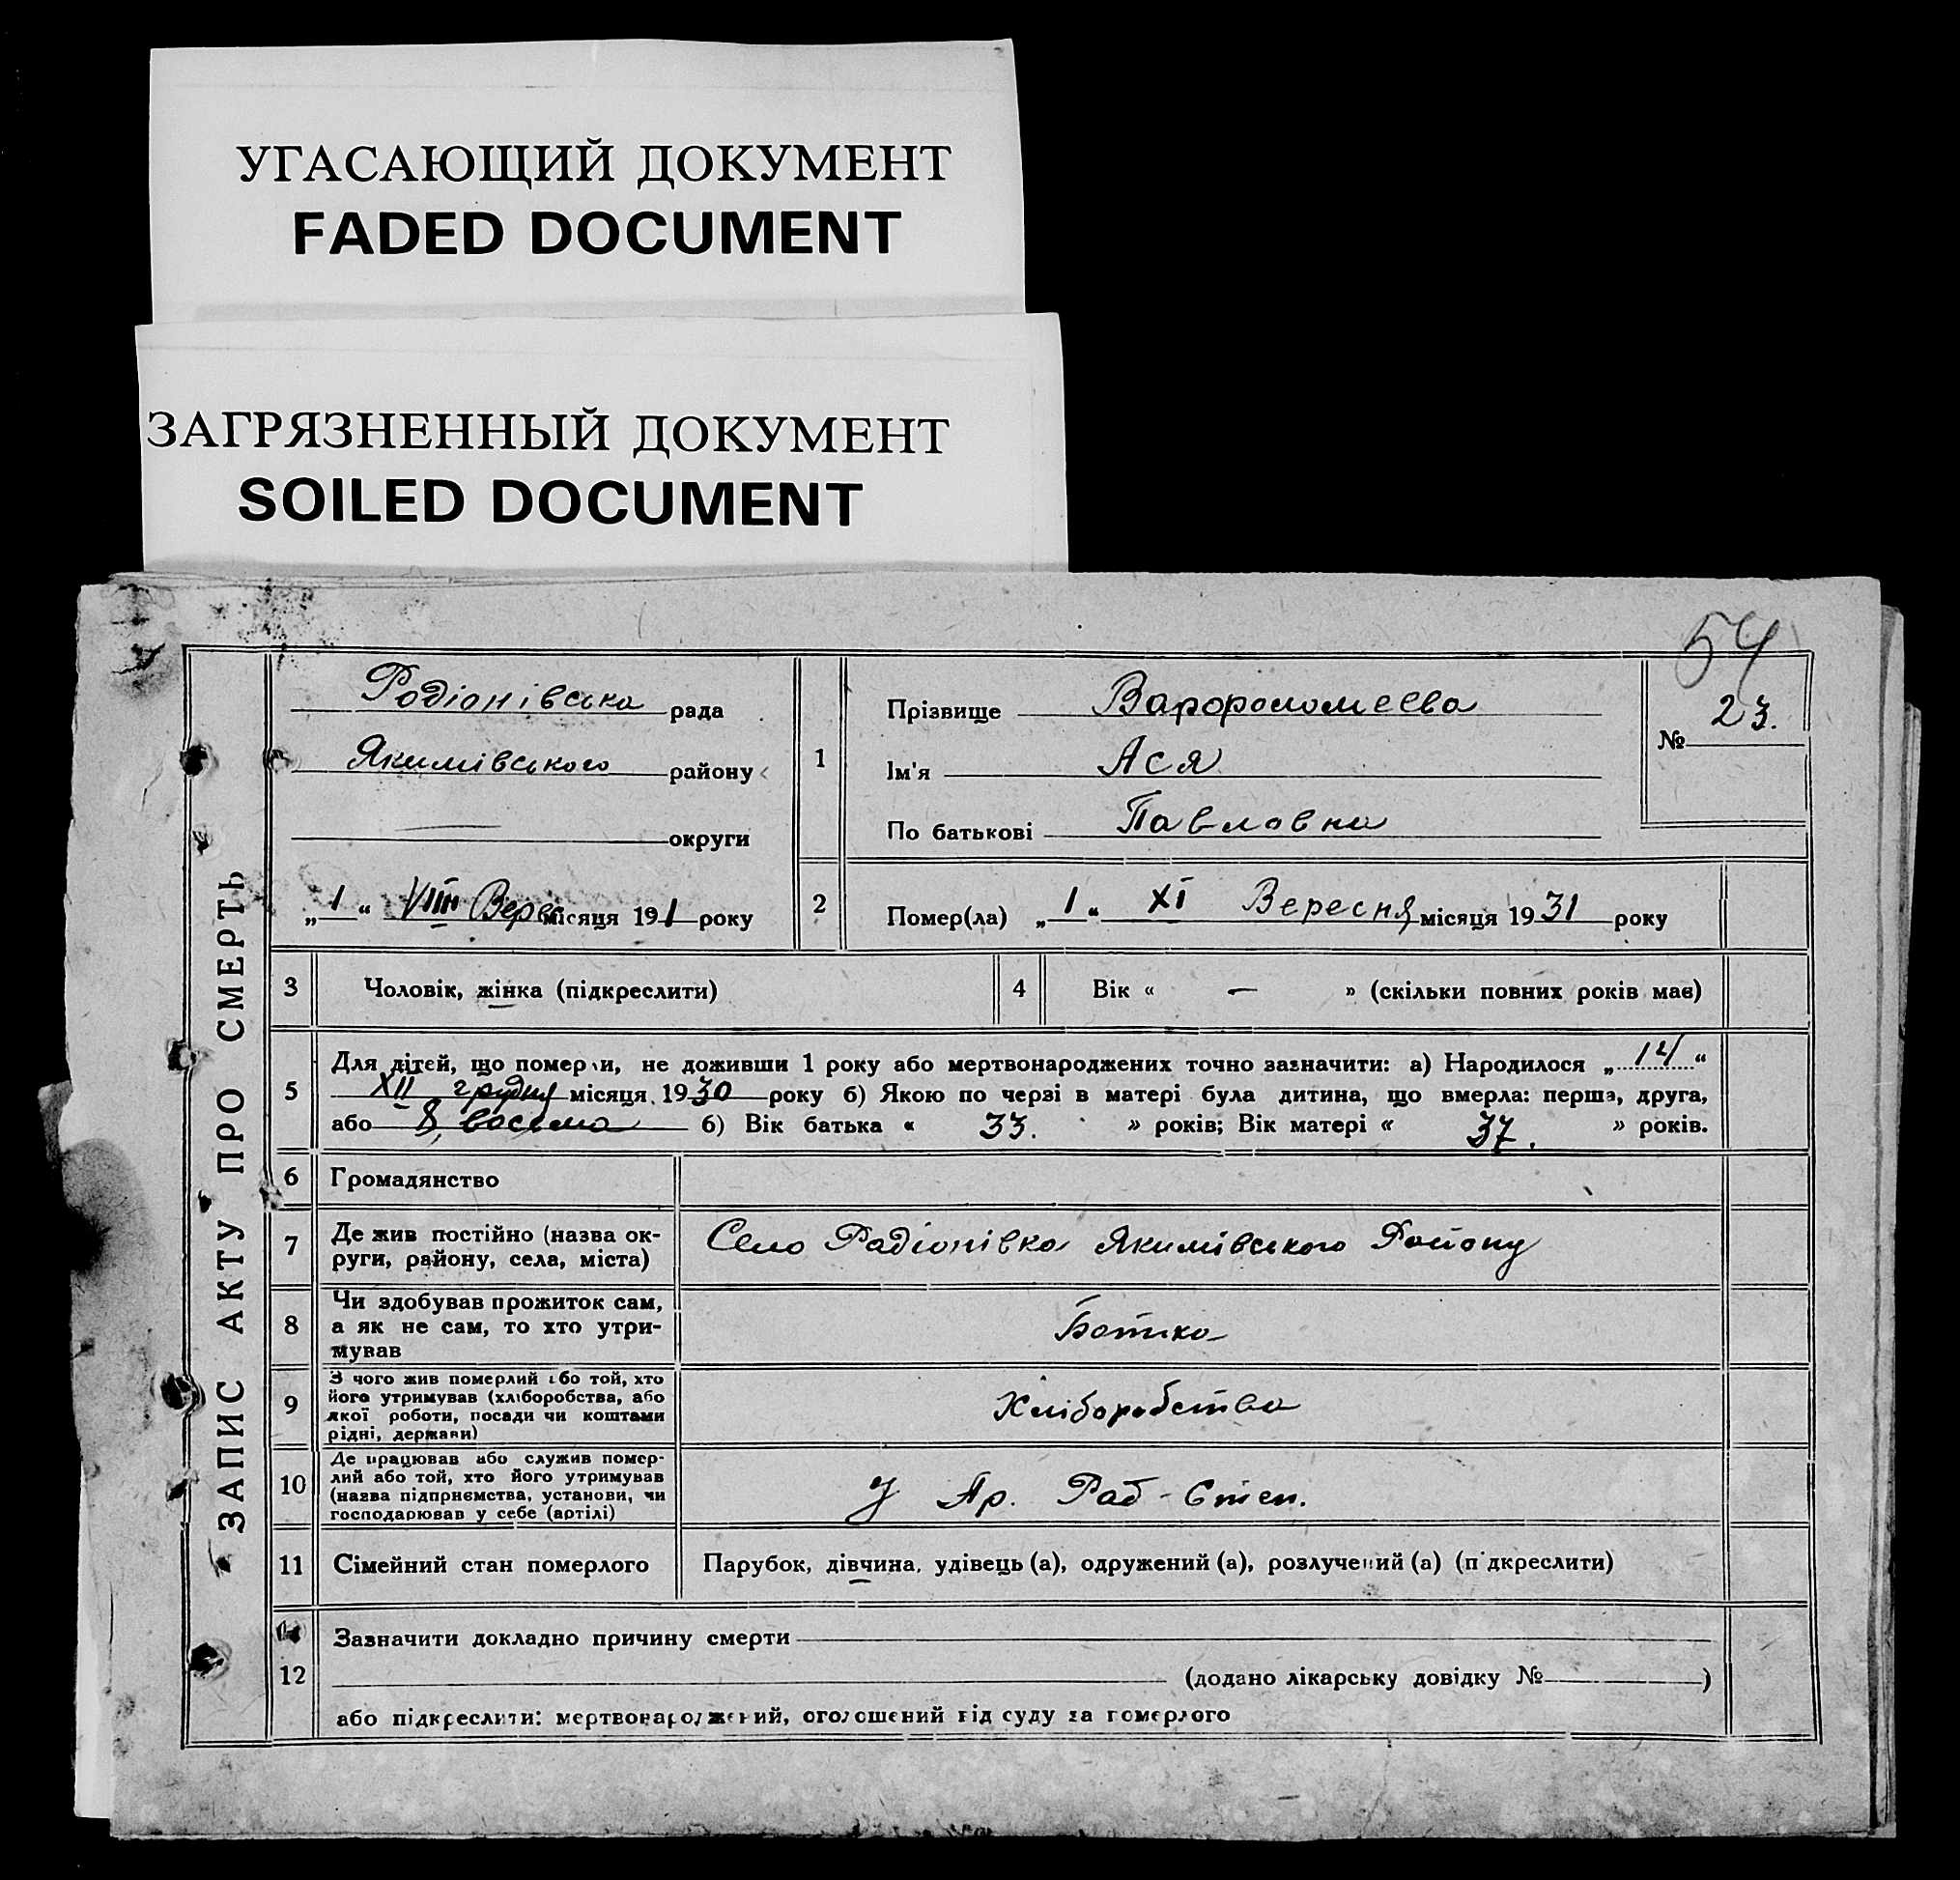 УГАСАЮЩИЙ ДОКУМЕНТ
FADED DOCUMENT
ЗАГРЯЗНЕННЫЙ ДОКУМЕНТ
SOILED DOCUMENT
54
ЗАПИС АКТУ ПРО СМЕРТЬ
Родіонівська рада
Якимівського району
округи
„1“ VIII Вере місяця 191 року
1
Прізвище Варфоломеева
Ім'я Ася
По батькові Павловна
№ 23.
2 Помер(ла) „1“ XI Вересня місяця 1931 року
3 Чоловік, жінка (підкреслити)
4 Вік « — » (скільки повних років має)
5 Для дітей, що померли, не доживши 1 року або мертвонароджених точно зазначити: а) Народилося „14“
XII грудня місяця 1930 року б) Якою по черзі в матері була дитина, що вмерла: перша, друга,
або 8, восьма б) Вік батька « 33. » років; Вік матері « 37. » років.
6 Громадянство
7 Де жив постійно (назва ок-
руги, району, села, міста)
Село Радіонівка Якимівського Району
8 Чи здобував прожиток сам,
а як не сам, то хто утри-
мував
Батько
9 З чого жив померлий або той, хто
його утримував (хліборобства, або
якої роботи, посади чи коштами
рідні, держави)
Хліборобства
10 Де працював або служив помер-
лий або той, хто його утримував
(назва підприємства, установи, чи
господарював у себе (артілі)
У Ар. Рад-Степ.
11 Сімейний стан померлого
Парубок, дівчина, удівець (а), одружений (а), розлучений (а) (підкреслити)
12 Зазначити докладно причину смерти
(додано лікарську довідку № )
або підкреслити: мертвонароджений, оголошений від суду за померлого